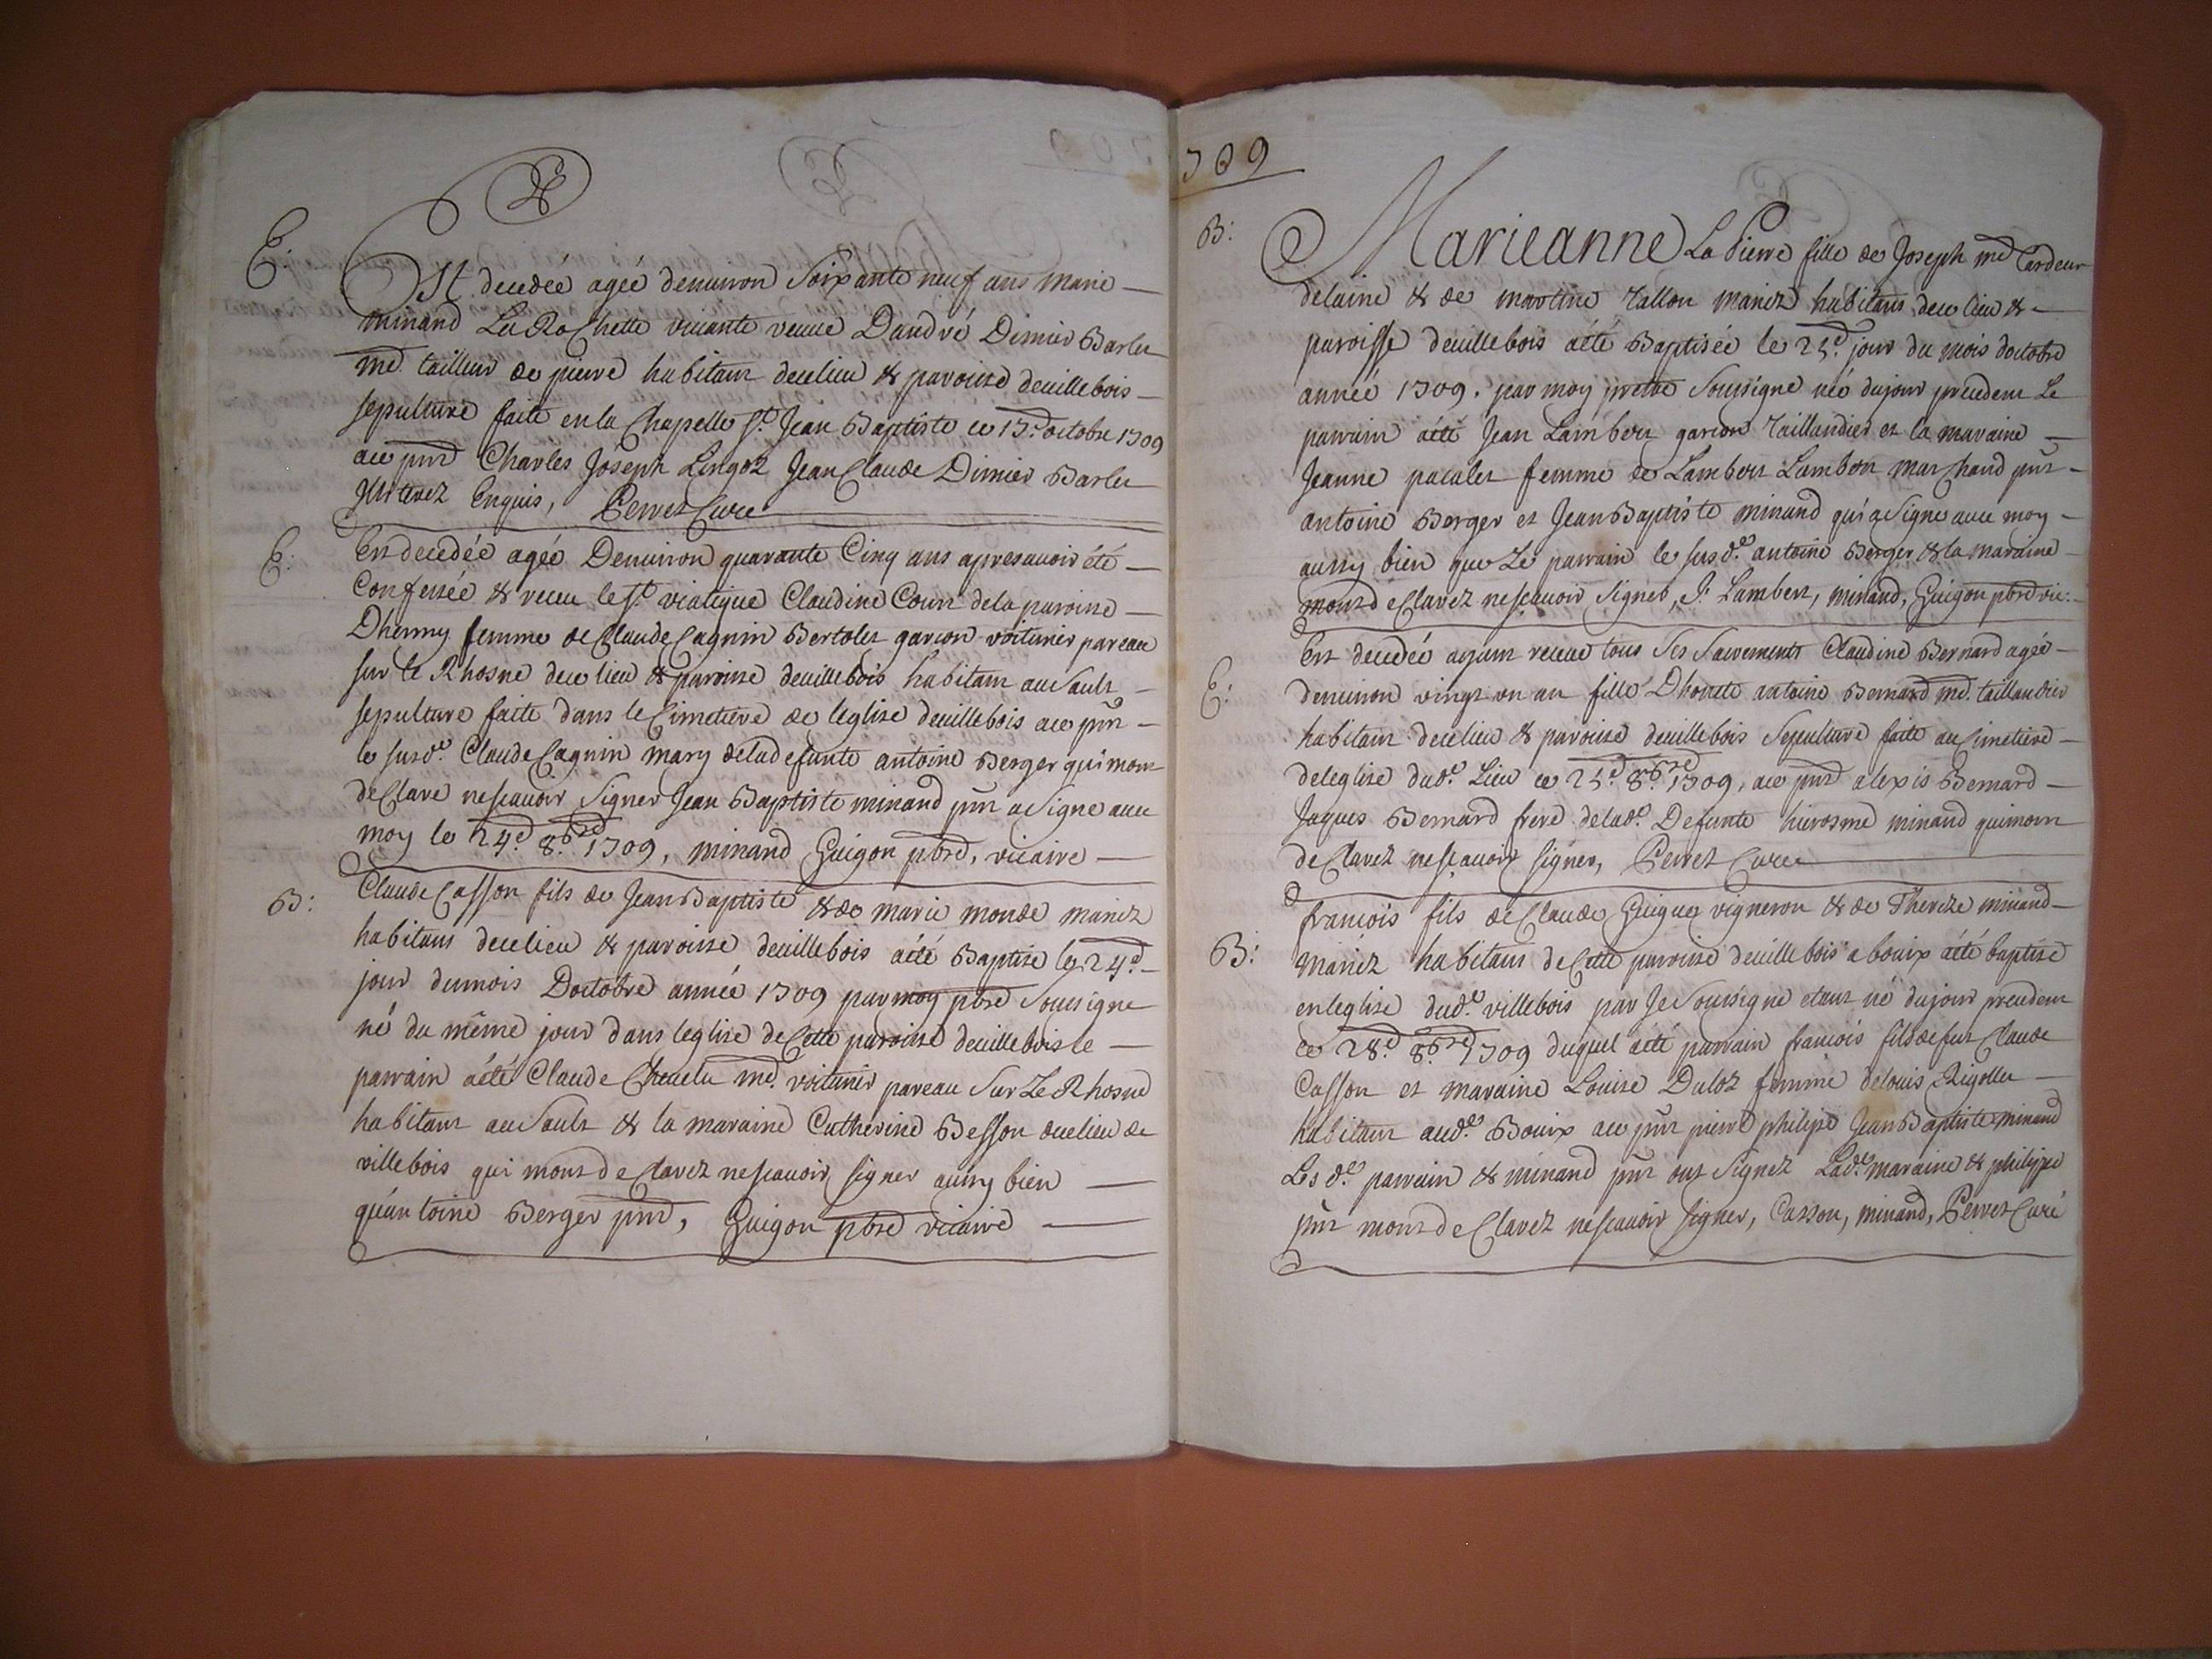 E.
Est decedée agée denuiron Soixante neuf ans Marie
minand La Rochette viuante veuue Dandré Dimier Barlet
me tailleur de pierre habitant decelieu & paroisse deuillebois
sepulture faite en la Chapelle St. Jean Baptiste ce 13e octobre 1709
ace pnts Charles Joseph Lingoz Jean Claude Dimier Barlet
Illiterez Enquis, Perret Cure
E.
Est decedée agée Denuiron quarante Cinq ans apres auoir été
Confessée & receu le St. viatique Claudine Court dela paroisse
Dhenny femme de Claude Cagnin Bertolet garcon voiturier pareau
sur le Rhosne dece lieu & paroisse deuillebois habitant au Sault
sepulture faite dans le Cimetiere de leglise deuillebois ace pnt
le susde. Claude Cagnin mary deladefunte antoine Berger qui mont
de Clare nescauoir Signer Jean Baptiste minand pnt a Signe auec
moy le 24e. 8bre 1709, minand Guigon pbre, vicaire
B:
Claude Casson fils de Jean Baptiste & de marie monde mariez
habitans decelieu & paroisse deuillebois aété Baptise le 24e.
jour dumois Doctobre année 1709 par moy pbre Soussigne
né du même jour dans leglise de Cette paroisse deuillebois le
parrain aété Claude Cheuelu me. voiturier pareau Sur Le Rhosne
habitant au Sault & la maraine Catherine Besson decelieu de
villebois qui mont de Clarez nescauoir signer aussy bien
qu'antoine Berger pnt, Guigon pbre vicaire
709
B:
Marieanne La Pierre fille de Joseph me Cardeur
delaine & de martine Tallon mariez habitans dece lieu &
paroisse deuillebois aété Baptisée le 25e. jour du mois doctobre
année 1709. par moy pretre Soussigne née dujour precedent Le
parrain aété Jean Lambert garcon Taillandier et la maraine
Jeanne pacalet femme de Lambert Lambert marchand pnt
antoine Berger et Jean Baptiste minand qui a Signe auec moy
aussy bien que Le parrain le susde. antoine Berger & la maraine
mont de Clarez nescauoir Signer, J. Lambert, minand, Guigon pbre vic.
E.
Est decedée ayant receue tous Ses Sacrements Claudine Bernard agée
denuiron vingt vn an fille Dhonete antoine Bernard me. taillandier
habitant decelieu & paroisse deuillebois Sepulture faite au Cimetiere
deleglise dude. Lieu ce 25e. 8bre 1709, ace pnts alexis Bernard
Jaques Bernard frere delade. Defunte hierosme minand qui mont
de Clarez nescauoir signer, Perret Cure
B:
francois fils de Claude Guigue vigneron & de Thereze minand
mariez habitans de Cette paroisse deuillebois a bouix aété baptise
enleglise dude. villebois par Je Soussigne etant né dujour precedent
ce 28e. 8bre 1709 duquel aété parrain francois fils defut Claude
Casson et maraine Louise Duloz femme delouis Rigollet
habitant aude. Bouix ace pnt pierre philipe Jean Baptiste minand
Les de. parrain & minand pnt ont Signez Lade. maraine & philippe
pnt mont de Clarez nescauoir signer, Casson, minand, Perret Curé